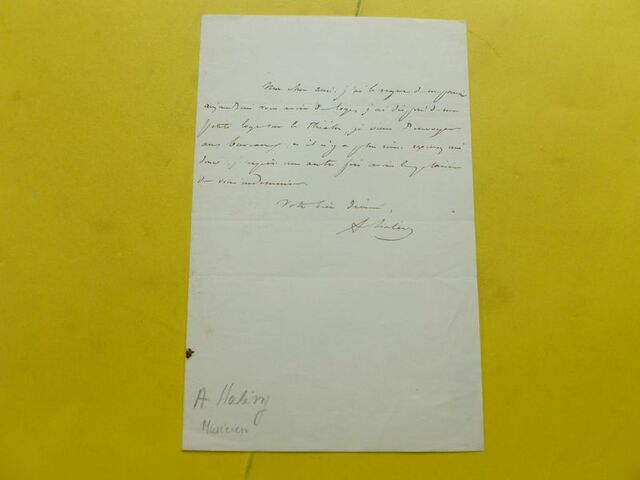 Mon cher ami, j'ai le regret de ne pouvoir
aujourd'hui vous avoir de loge, j'ai disposé de ma
petite loge sur le Théâtre, je viens d'envoyer
aux bureaux, et il n'y a plus rien. excusez moi
donc, j'espère une autre fois avoir le plaisir
de vous indemniser
Votre bien dévoué,
A halévy
A. Halévy
Musicien